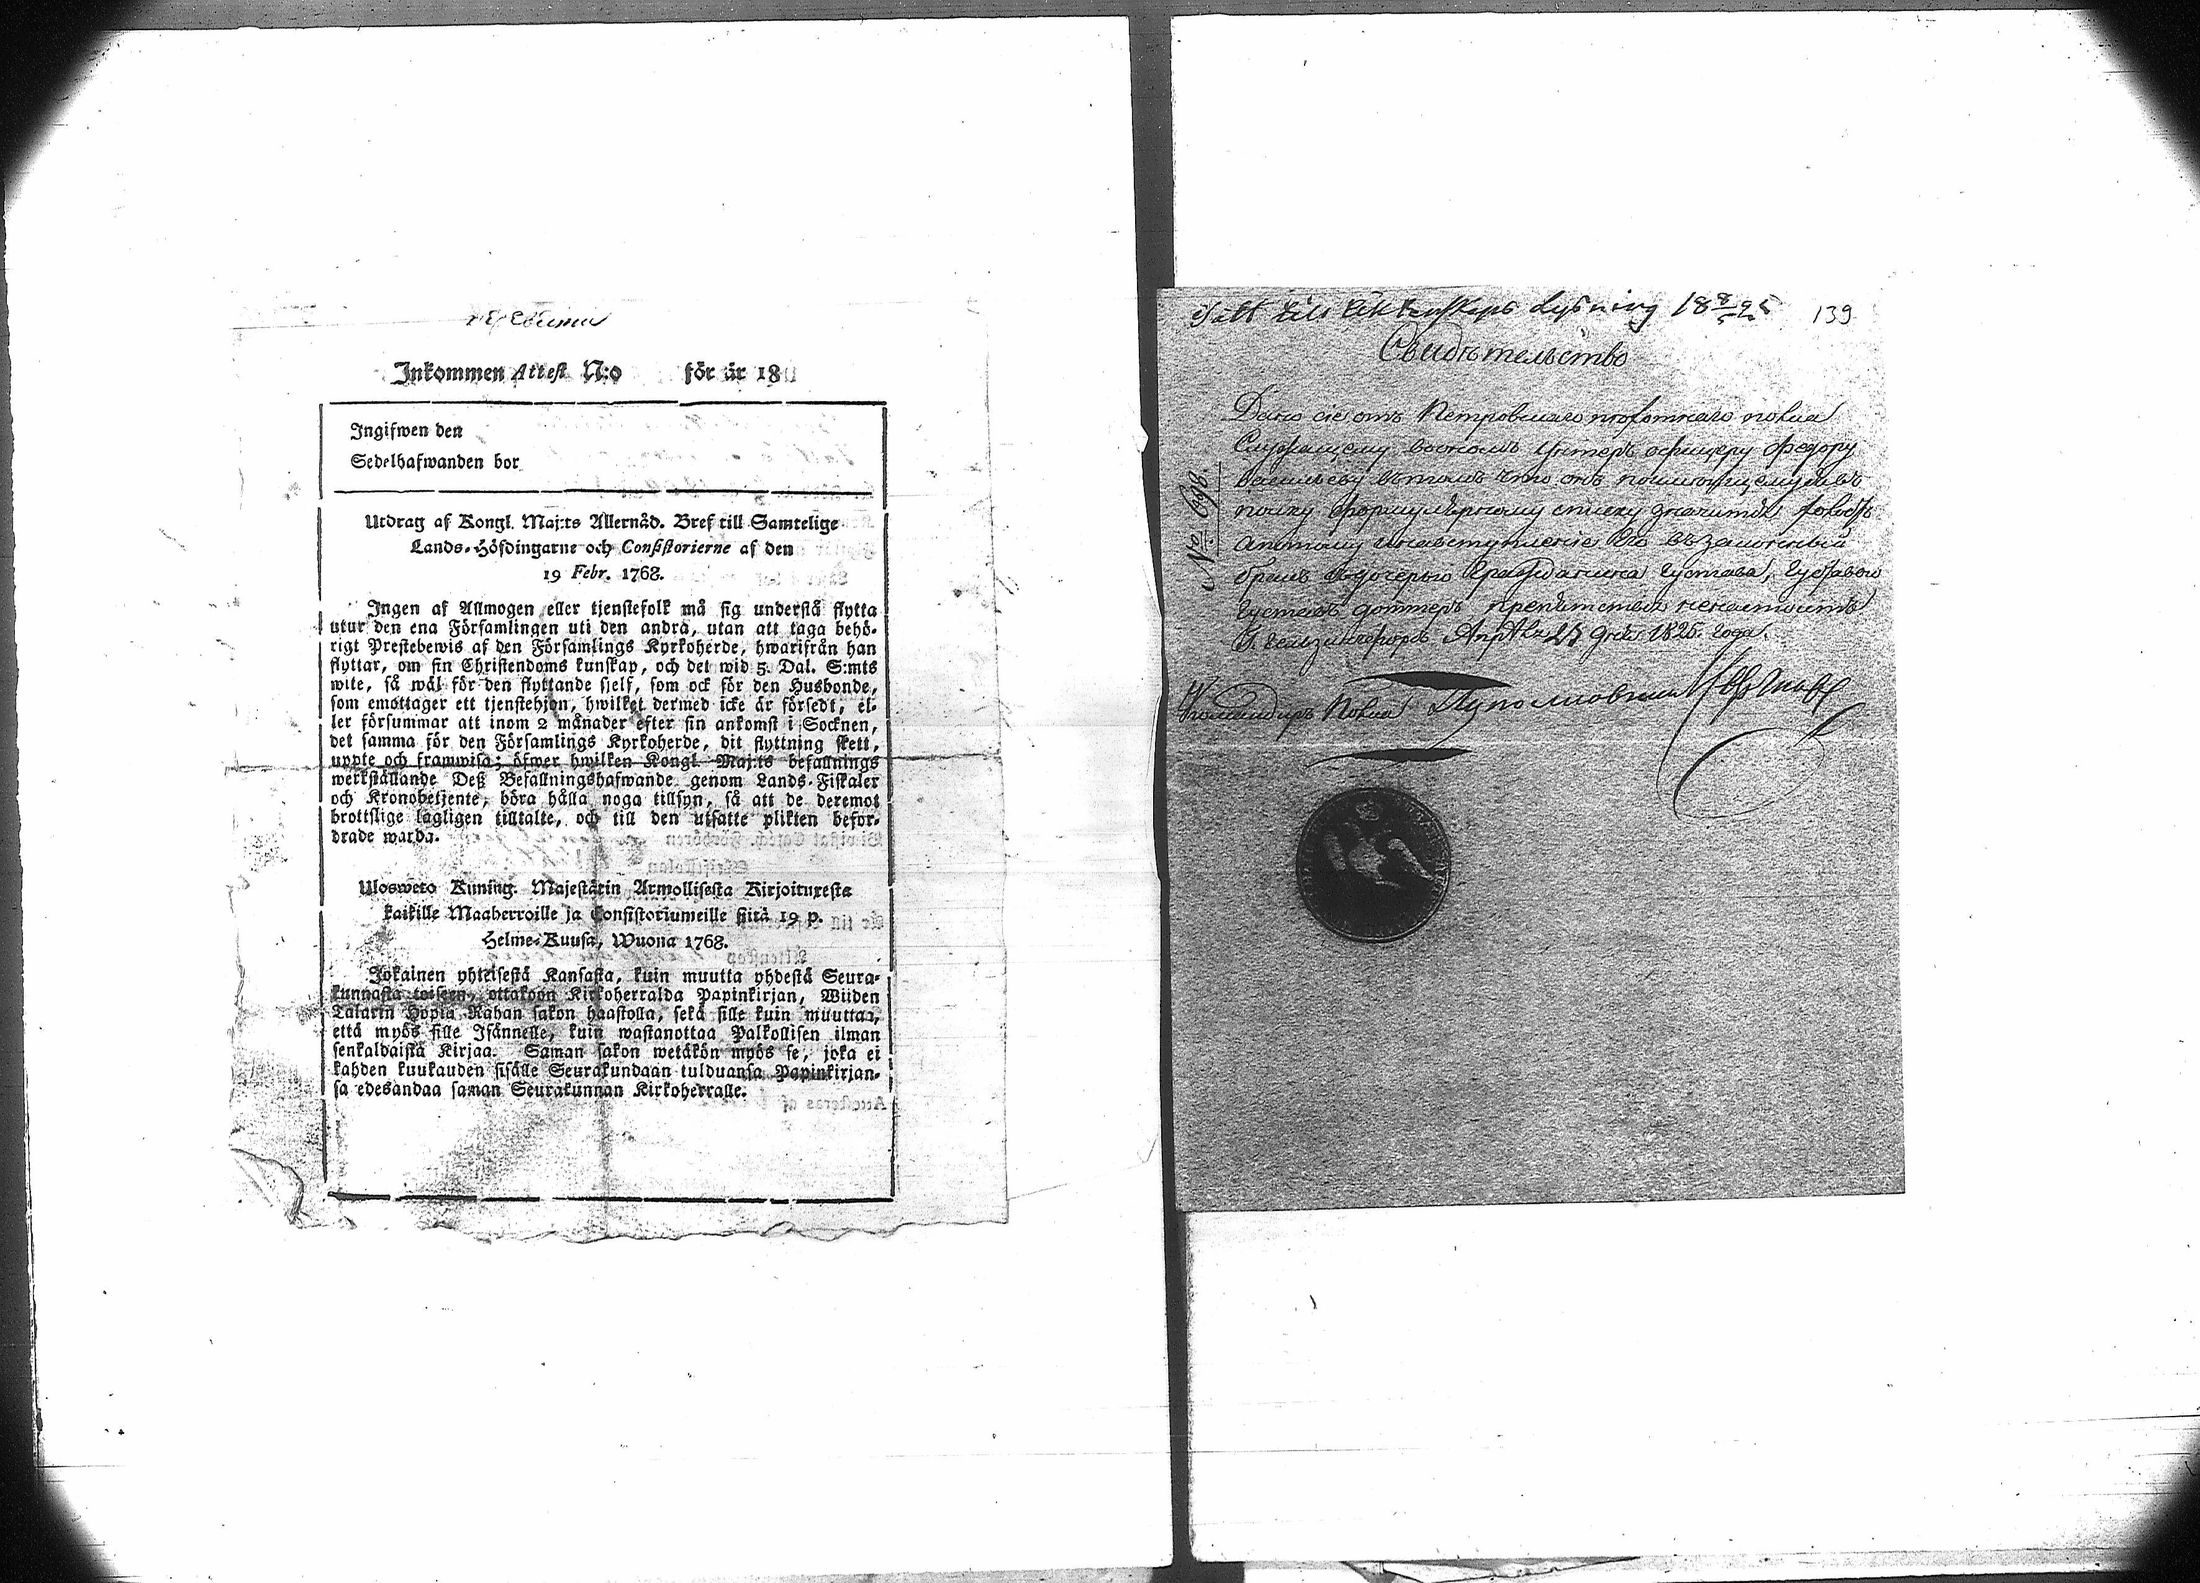 Inkommen Attest N:o för år 18
Ingifwen den
Sedelhafwanden bor
Utdrag af Kongl. Maj:ts Allernåd. Bref till Samtelige
Lands-Höfdingarne och Consistorierne af den
19 Febr. 1768.
Ingen af Allmogen eller tjenstefolk må sig understå flytta
utur den ena Församlingen uti den andra, utan att taga behö-
rigt Prestebewis af den Församlings Kyrkoherde, hwarifrån han
flyttar, om sin Christendoms kunskap, och det wid 5. Dal. S:mts
wite, så wäl för den flyttande sjelf, som ock för den Husbonde,
som emottager ett tjenstehjon, hwilket dermed icke är försedt, el-
ler försummar att inom 2 månader efter sin ankomst i Socknen,
det samma för den Församlings Kyrkoherde, dit flyttning skett,
uppte och framwisa; öfwer hwilken Kongl. Maj:ts befallnings
werkställande Deß Befallningshafwande genom Lands-Fiskaler
och Kronobetjente, böra hålla noga tillsyn, så att de deremot
brottslige lagligen tilltalte, och till den utsatte plikten befor-
drade warda.
Ulosweto Kuning. Majestätin Armollisesta Kirjoituresta
kaikille Maaherroille ja Consistoriumeille siitä 19 p.
Helme-Kuusa, Wuona 1768.
Jokainen yhteisestä Kansasta, kuin muutta yhdestä Seura-
kunnasta toiseen, ottakoon Kirkoherralda Papinkirjan, Wiiden
Talarin Hopia Rahan sakon haastolla, sekä sille kuin muuttaa,
että myös sille Isännelle, kuin wastanottaa Palkollisen ilman
senkaldaista Kirjaa. Saman sakon wetäkön myös se, joka ei
kahden kuukauden sisälle Seurakundaan tulduansa Papinkirjan-
sa edesandaa saman Seurakunnan Kirkoherralle.
till Lysning 18 25 139
Свидѣтельство
Дано сіе отъ Петровскаго пѣхотнаго полка
Служащему во ономъ Унтеръ офицеру Федору
Васильеву въ томъ что онъ по имѣющемуся въ
полку формулярному списку значится холостъ
а потому на вступленіе Его въ законный
бракъ съ дочерью гражданина Густава,
препятствія
Г. Гельзингфорсъ Апрѣля 27 дня 1825. года.
Командиръ Полка Подполковникъ